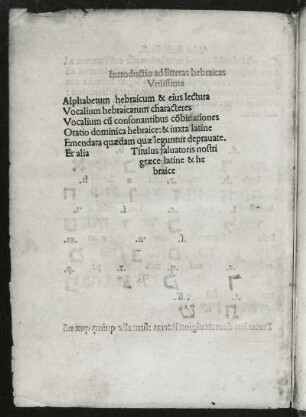 Introductio ad litteras hebraicas
Vtilissima
Alphabetum hebraicum & eius lectura
Vocalium hebraicarum characteres
Vocalium cũ consonantibus cõbinationes
Oratio dominica hebraice: & iuxta latine
Emendata quædam quæ leguntur deprauate.
Et alia Titulus saluatoris nostri
græce latine & he
braice